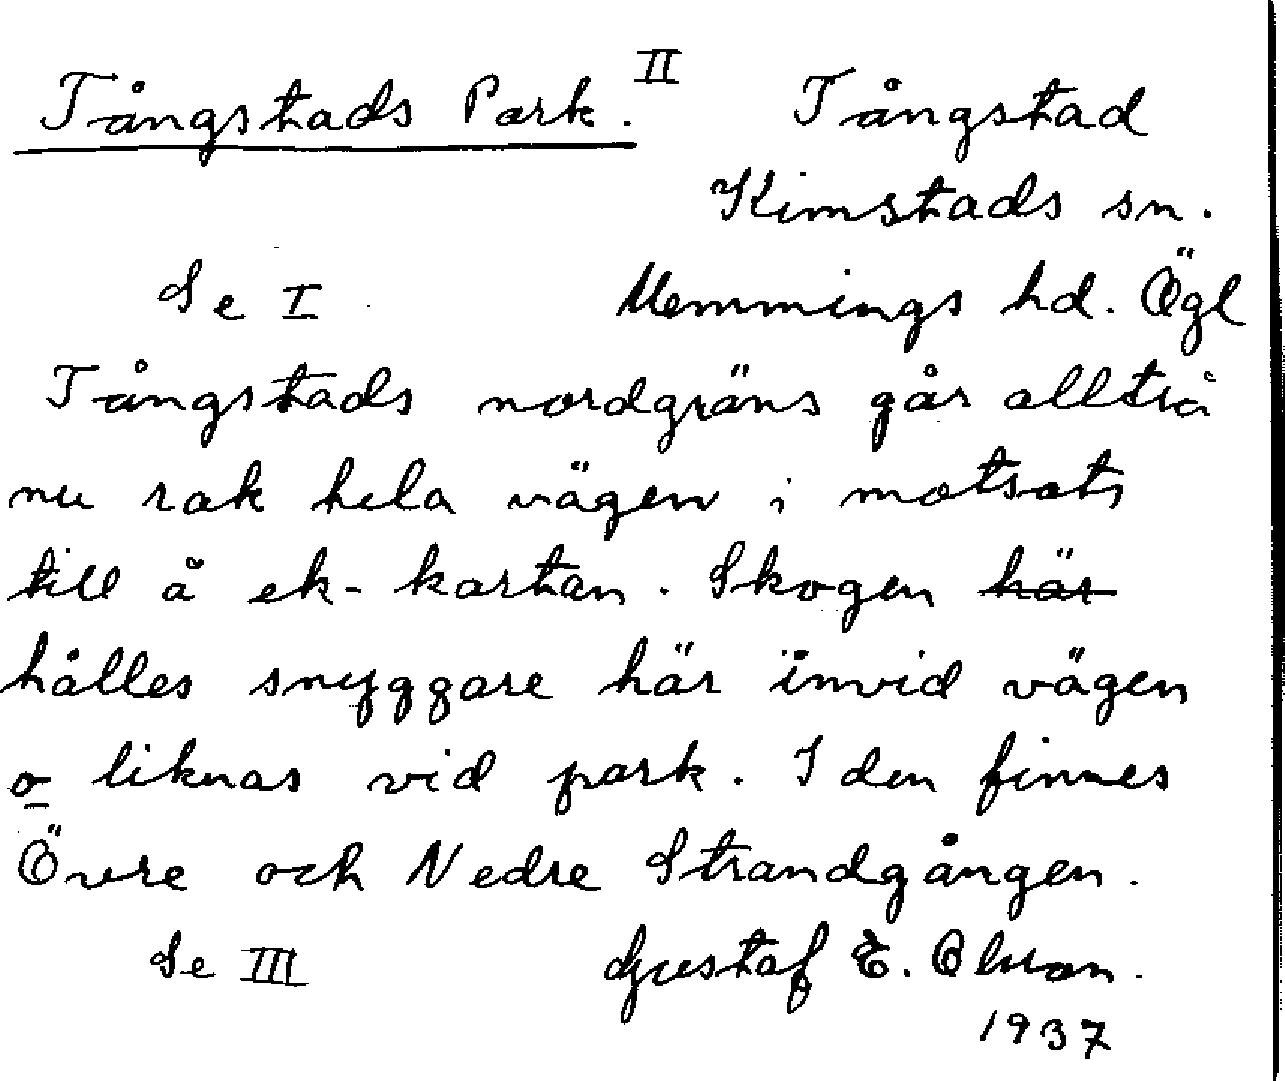 Tångstads Park. II Tångstad
Kimstads sn.
Se I Memmings hd. Ögl
Tångstads nordgräns går alltså
nu rak hela vägen i motsats
till å ek-kartan. Skogen här
hålles snyggare här invid vägen
o liknas vid park. I den finnes
Övre och Nedre Strandgången.
Se III Gustaf E. Olsson.
1937